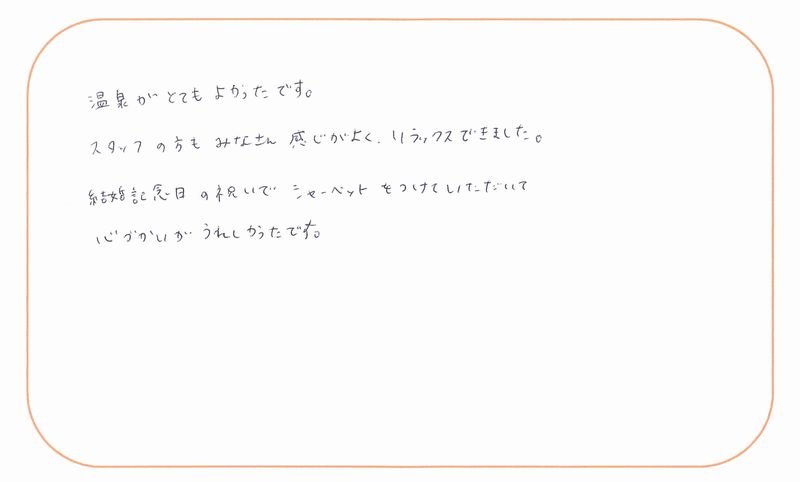 温泉がとてもよかったです。
スタッフの方もみなさん感じがよく、リラックスできました。
結婚記念日の祝いで シャーベットをつけていただいて
心づかいがうれしかったです。